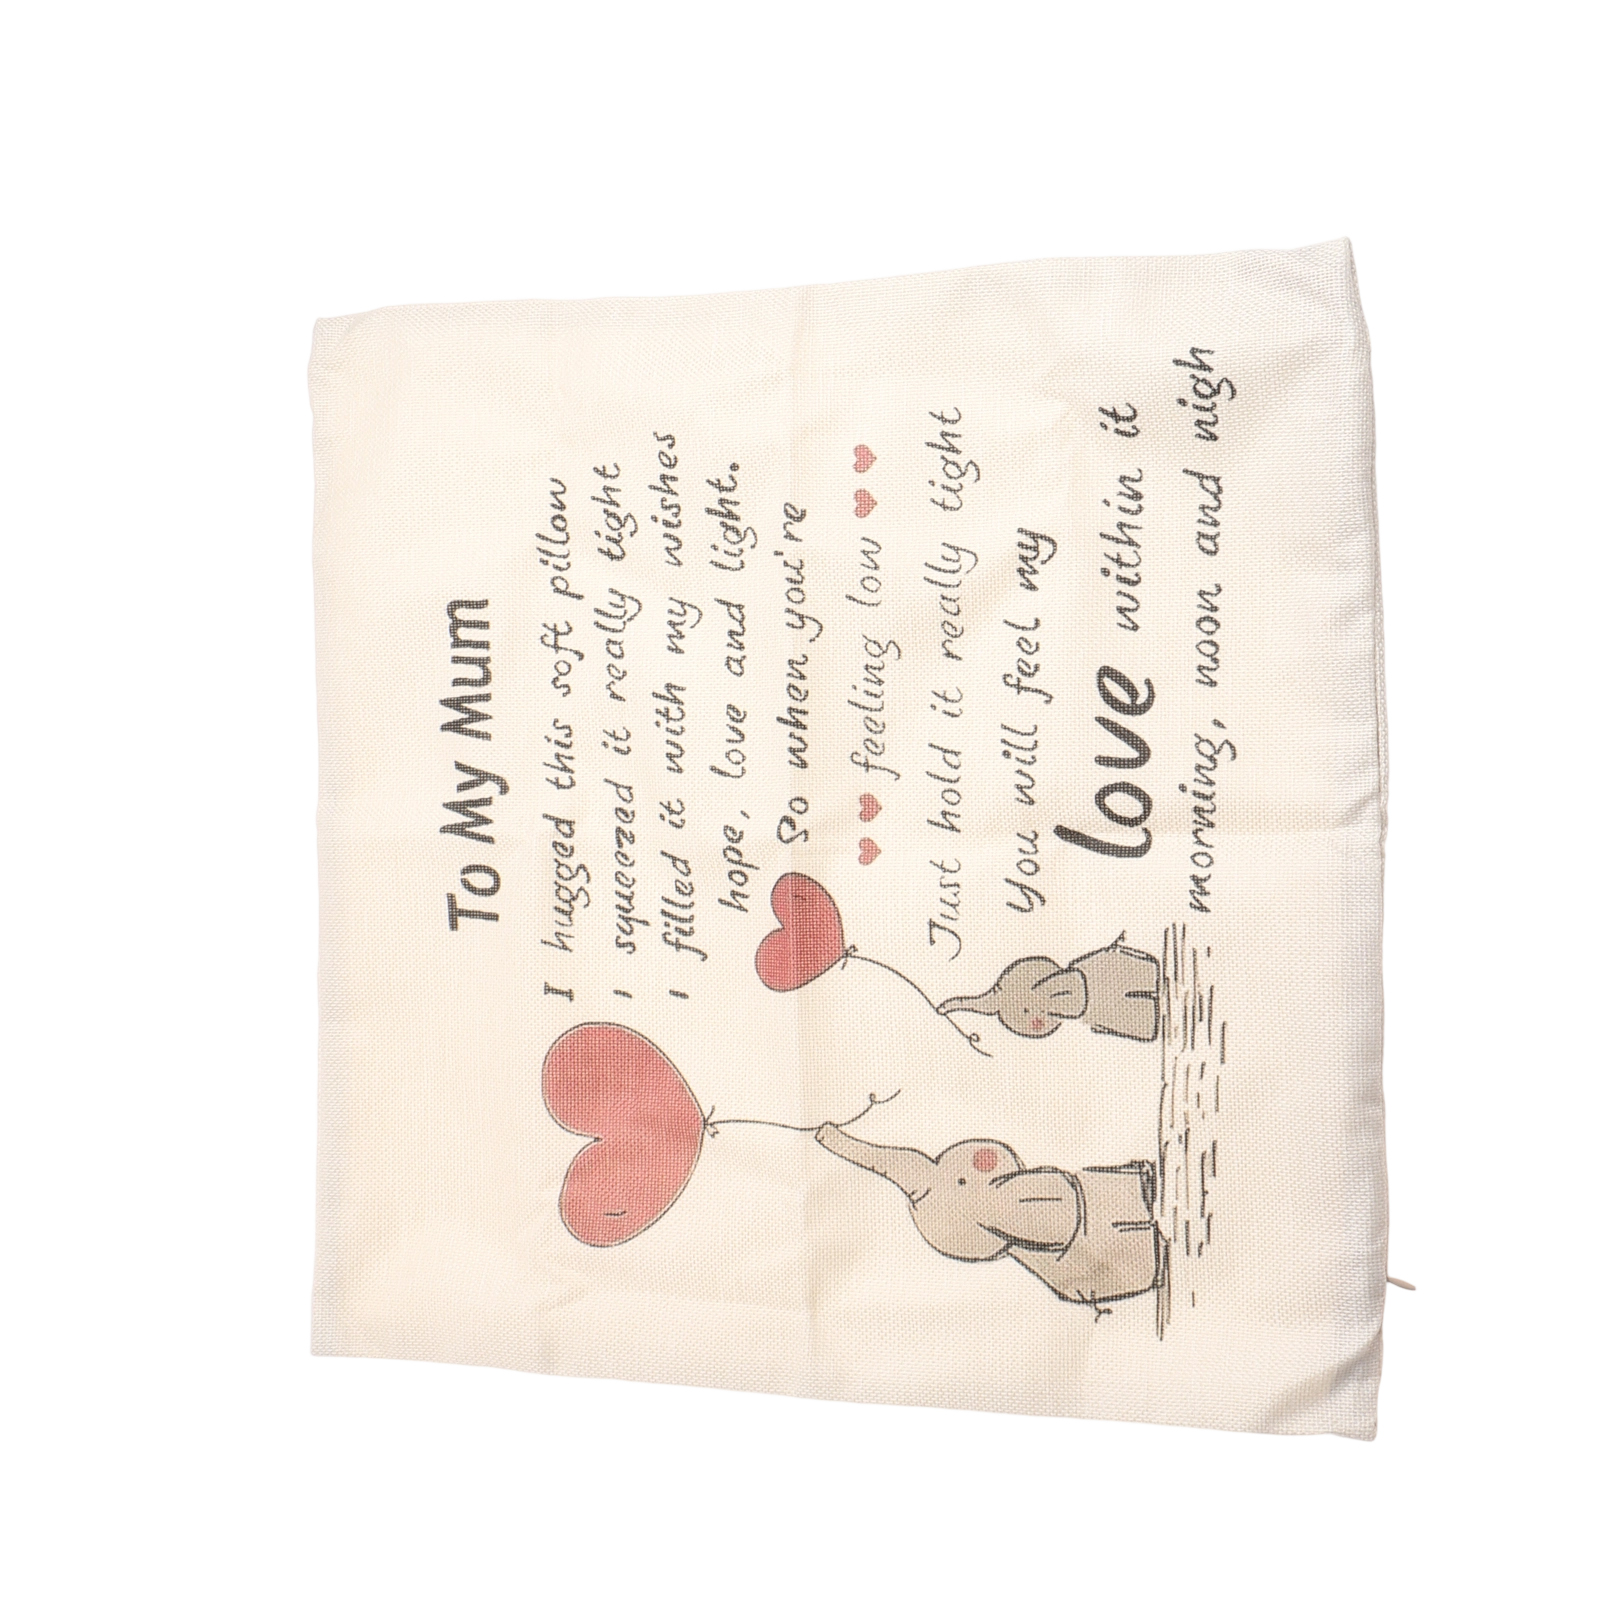 To My Mum
I hugged this soft pillow
I squeezed it really tight
I filled it with my wishes
hope, love and light.
So when you're
feeling low
Just hold it really tight
You will feel my
love within it
morning, noon and nigh